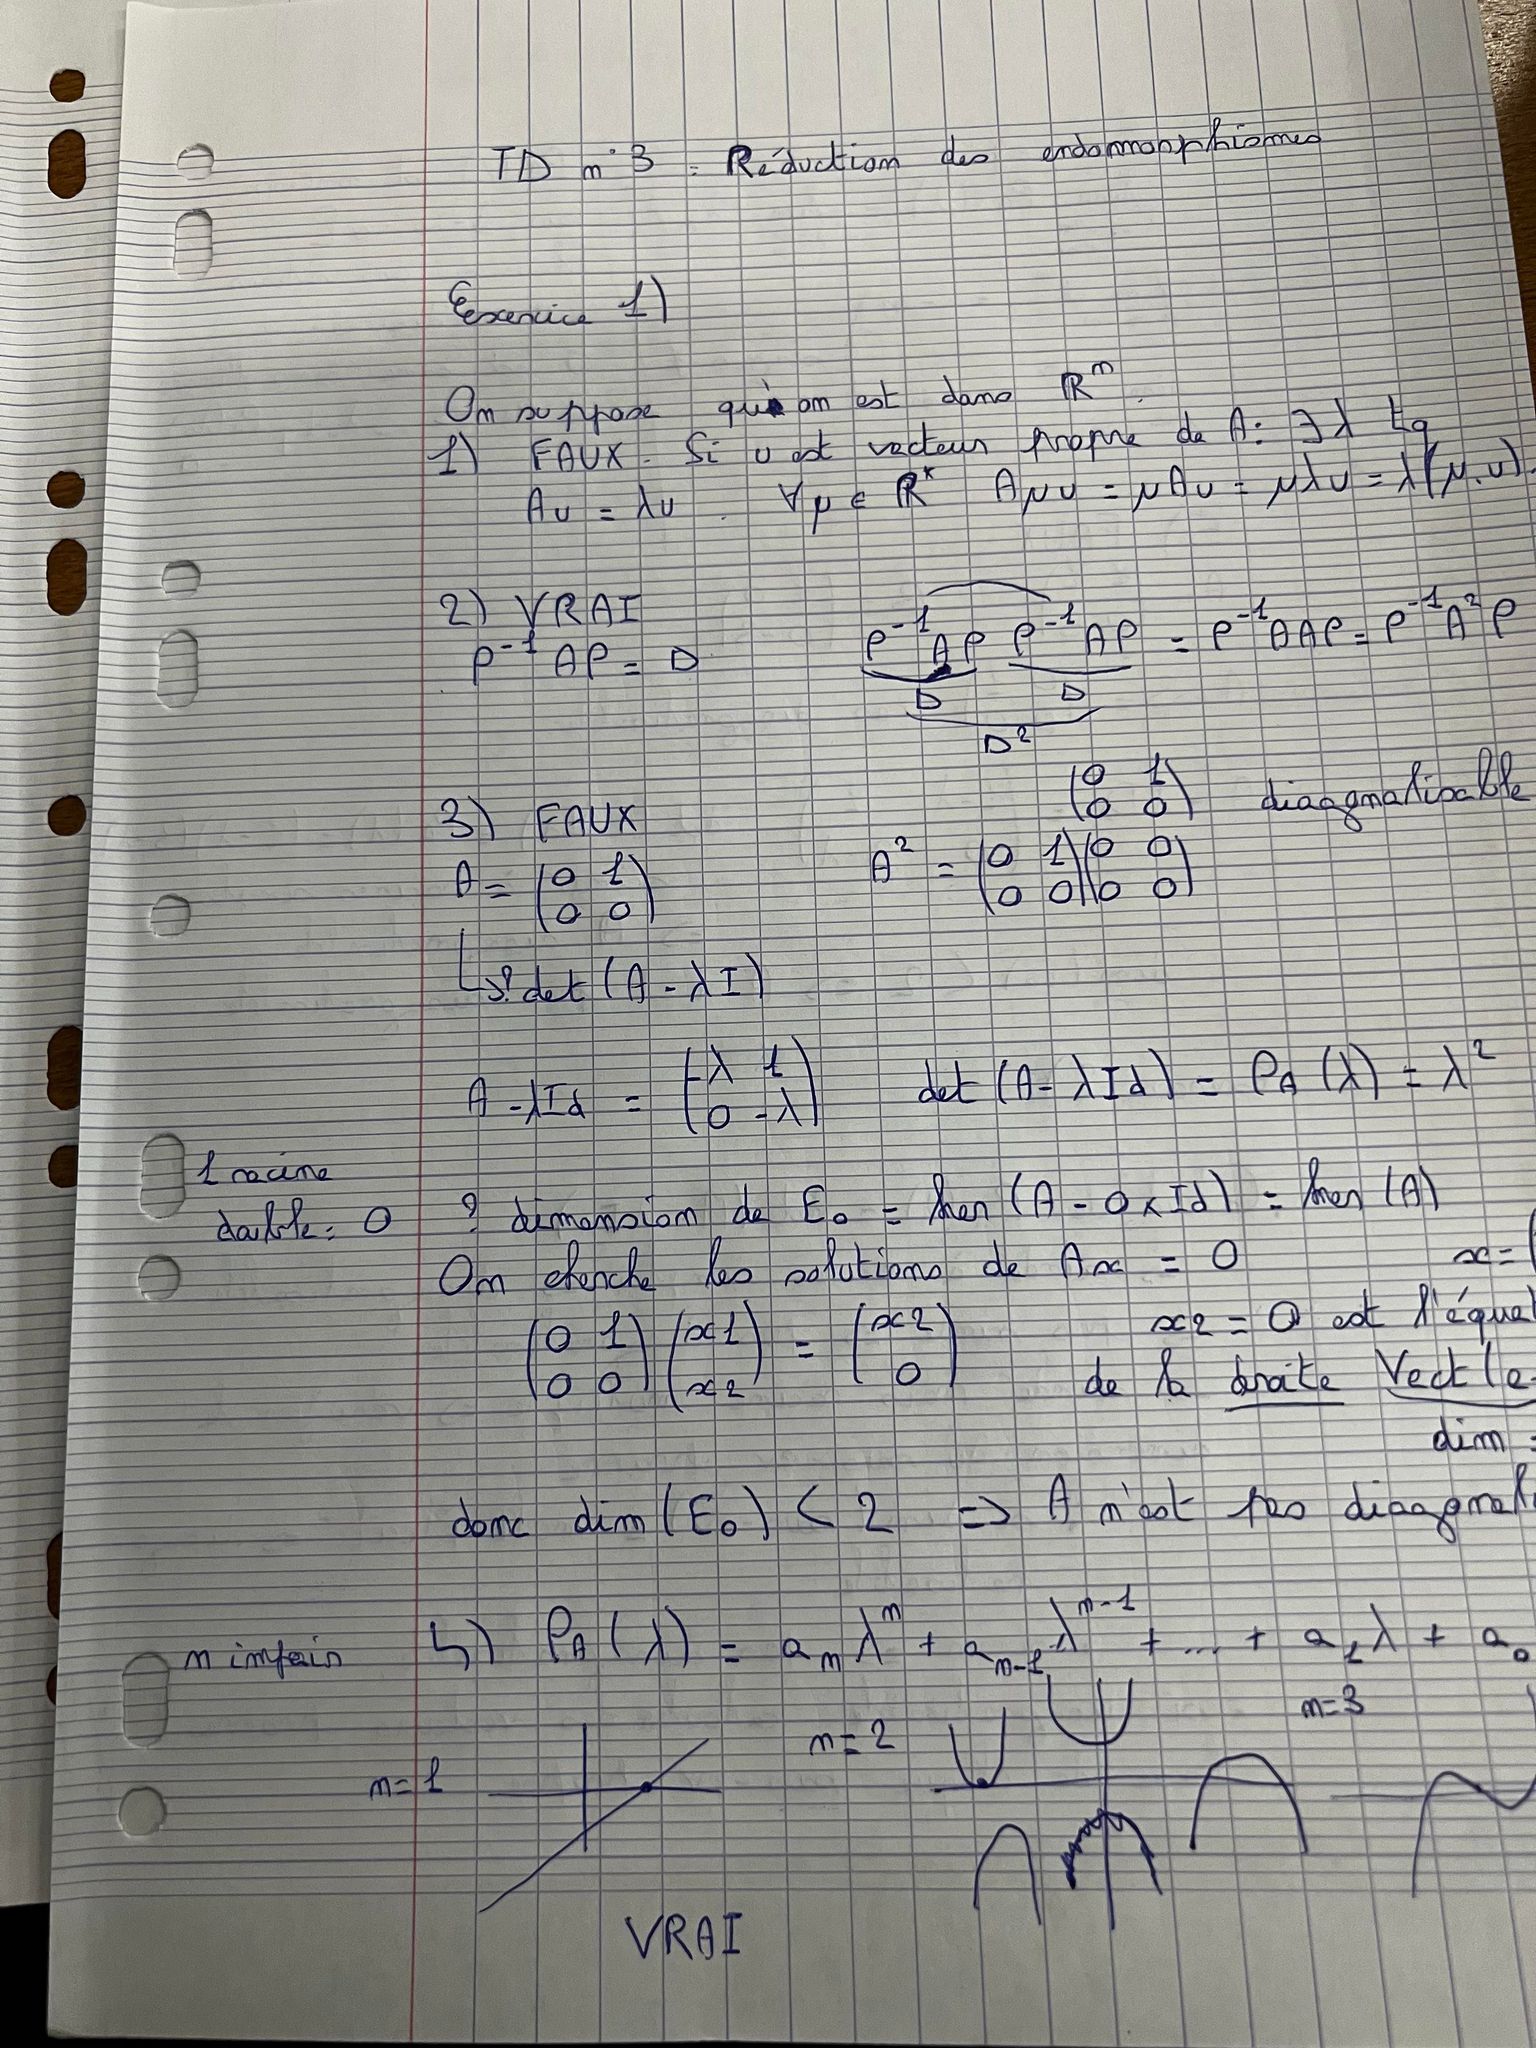 TD n°3 : Réduction des endomorphismes
Exercice 1)
On suppose qu'on est dans ℝⁿ.
1) FAUX. Si u est vecteur propre de A : ∃λ tq
Au = λu. ∀μ ∈ ℝ* Aμu = μAu = μλu = λ(μ.u).
2) VRAI
P⁻¹AP = D P⁻¹AP P⁻¹AP = P⁻¹AAP = P⁻¹A²P
D D
D²
3) FAUX (0 1
0 0) diaagnalisable
A = (0 1
0 0) A² = (0 1
0 0)(0 0
0 0)
↳? det(A - λI)
A - λId = (-λ 1
0 -λ) det(A - λId) = P_A(λ) = λ²
1 racine
double : 0 ? dimension de E₀ = ker(A - 0×Id) = ker(A)
On cherche les solutions de Ax = 0 x = (
(0 1
0 0)(x1
x2) = (x2
0) x2 = 0 est l'équa
de la droite Vect(e
dim =
donc dim(E₀) < 2 => A n'est pas diaagnali
n impair 4) P_A(λ) = aₙλⁿ + aₙ₋₁λⁿ⁻¹ + ... + a₁λ + a₀
n=1 n=2 n=3
VRAI